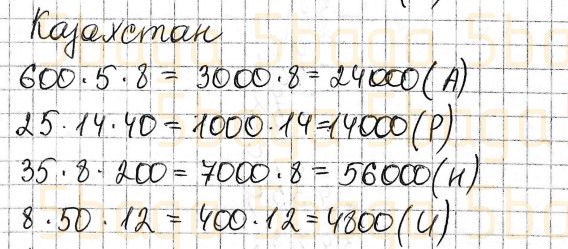 Казахстан
600·5·8 = 3000·8 = 24000(А)
25·14·40 = 1000·14=14000(Р)
35·8·200 = 7000·8 = 56000(Н)
8·50·12 = 400·12=4800(И)